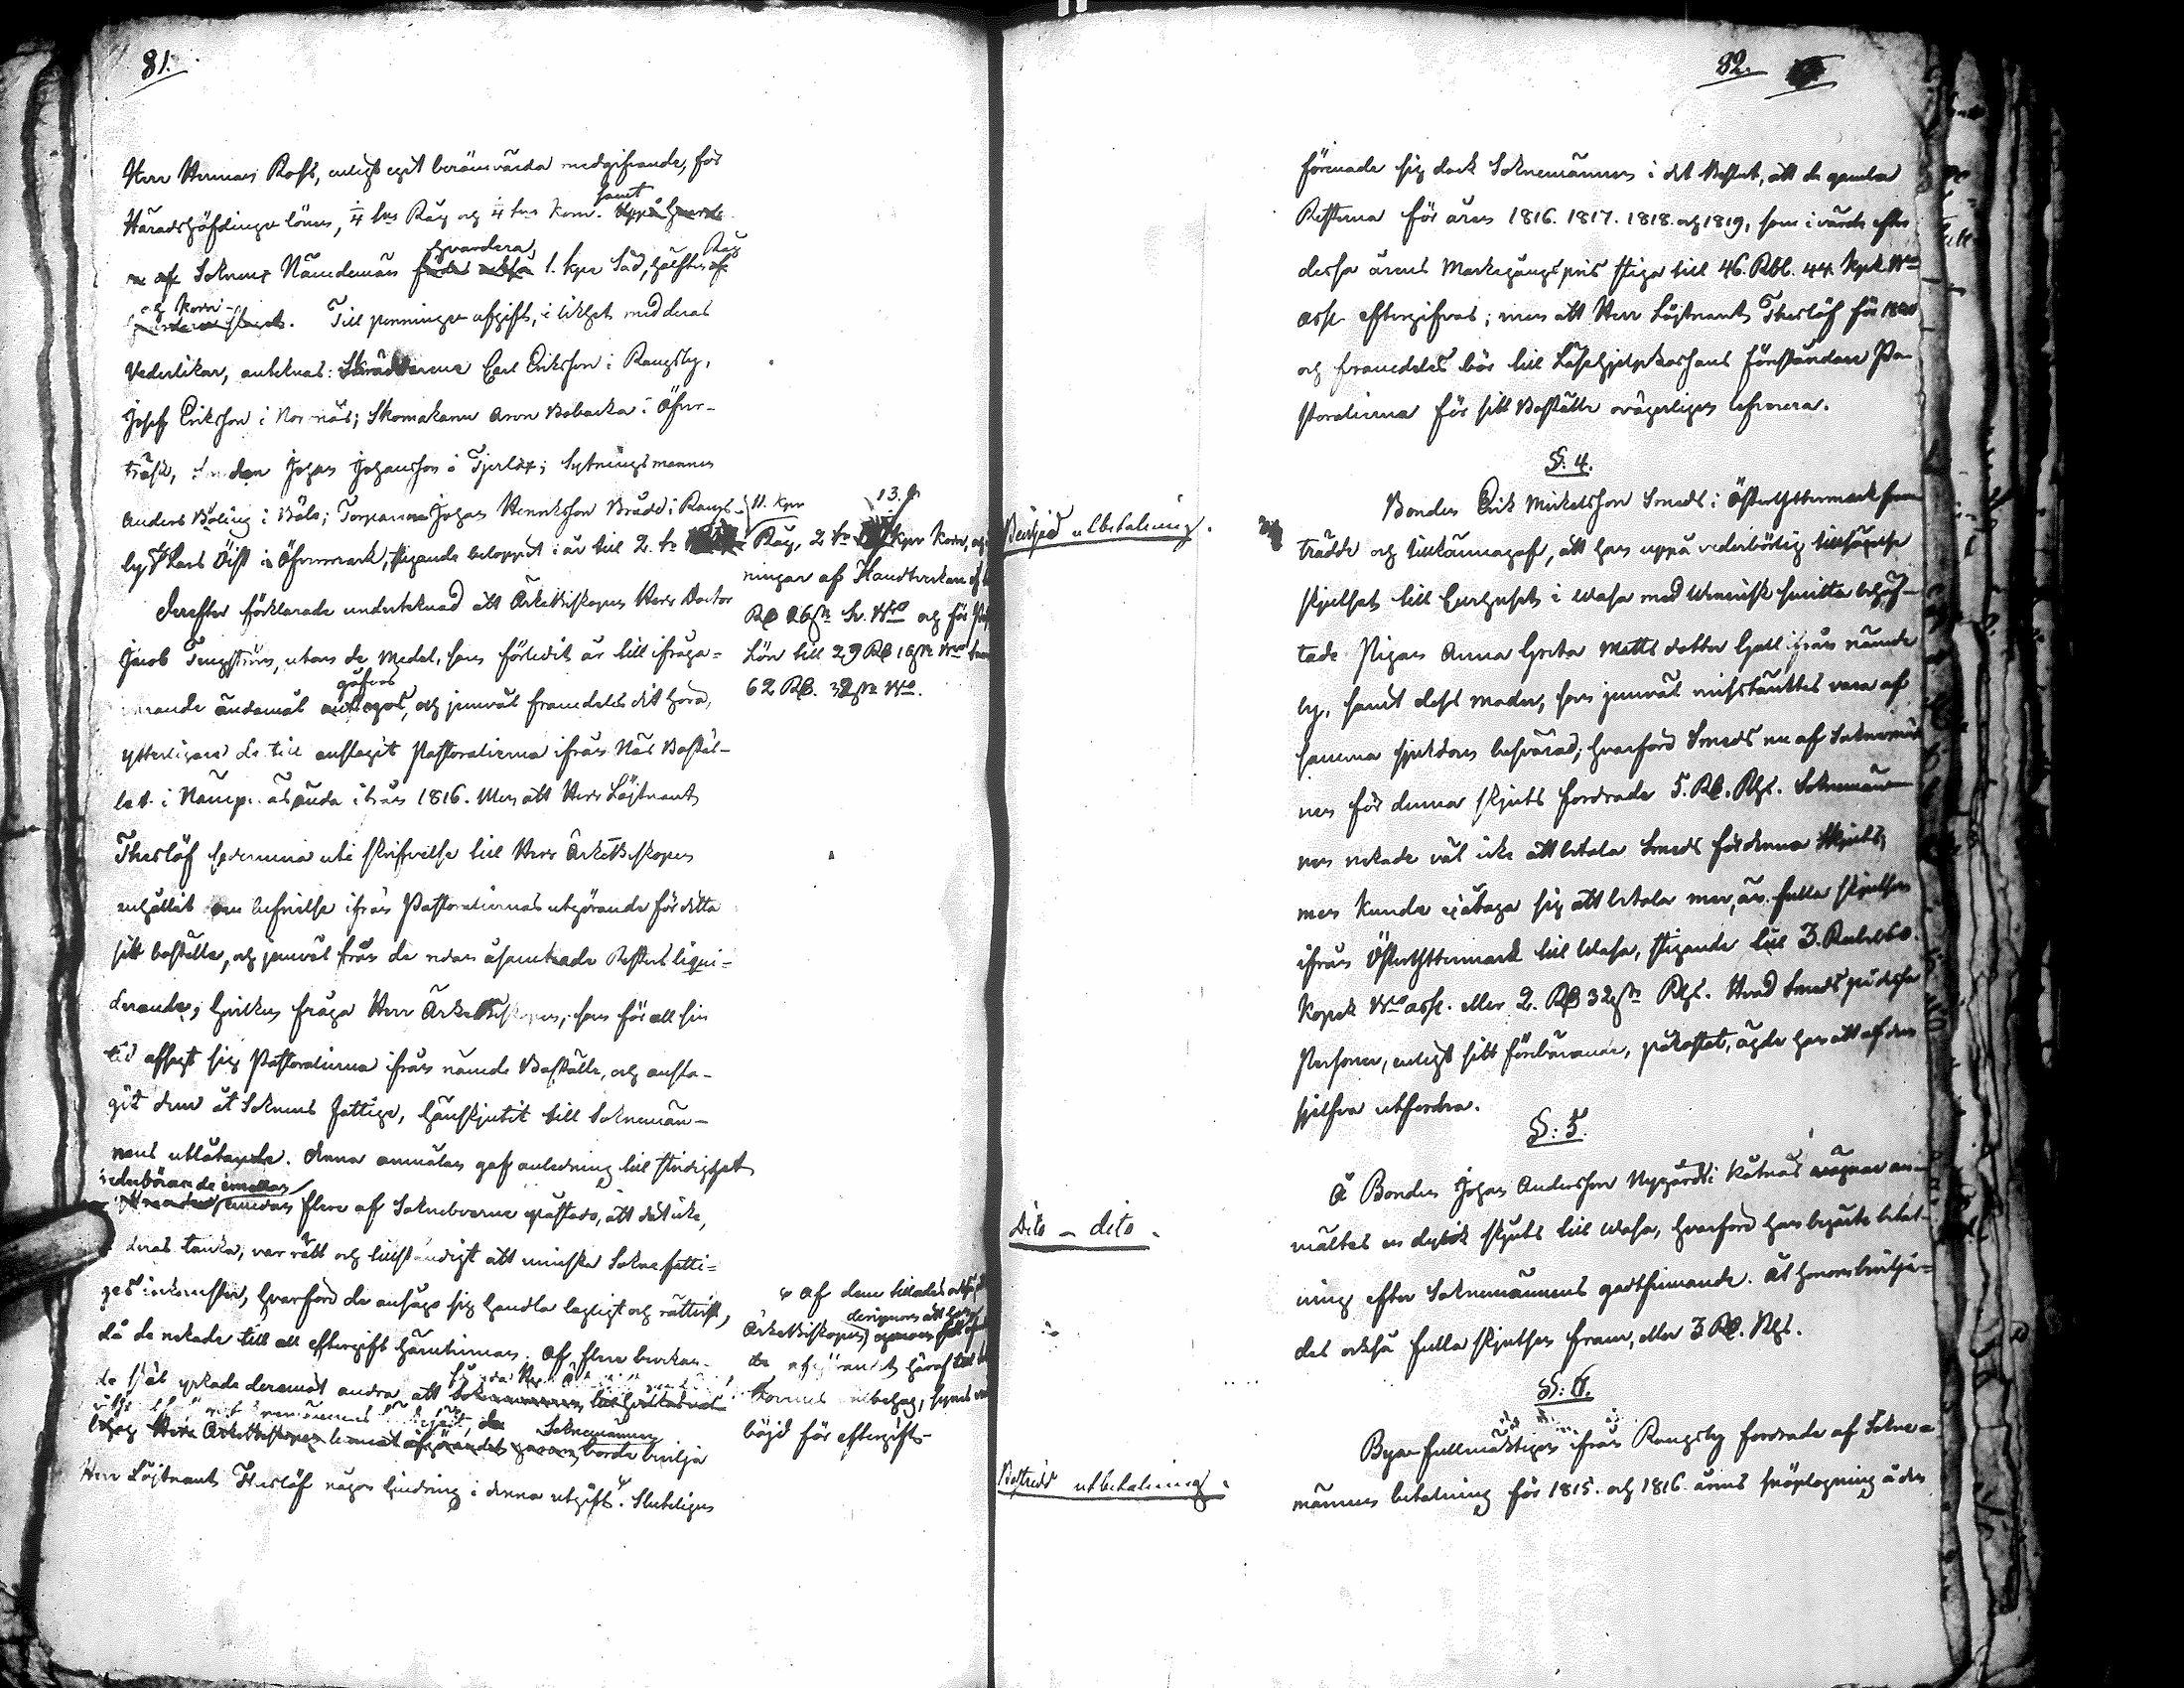 81.
Herr Herman Rofs, enligt eget berömvärda medgifvande, för
Häradshöfdinge lönen, 1/4 tna Råg och 1/4 tna Korn. samt
af Soknens Nämdemän hvardera, 1. kpe Säd, hälften Råg
och Korn. Till penninge afgift, i likhet med deras
Vederlikar, anteknas: Skräddarene Carl Eriksson i Rangsby,
Josef Eriksson i Norrnäs; Skomakaren Aron Bobacka i Öfver-
träsk, Smeden Johan Johansson å Tjerlax; Sytningsmannen
Anders Böling i Böle; Torparena Johan Henriksson Bråda i Rangs-
by & Lars Öist i Öfvermark, stigande beloppet i år till 2. tr
11. kpr
Råg, 2 tr 13. kpr Korn, och
ningar af Handtverkare och
RB 26 sk Sv. Wo och för
Lön till 29 RB 18 sk Wo
62 RB. 32 sk Wo.
Derefter förklarade underteknad att ÄrkeBiskopen Herr Doctor
Jacob Tengström, utom de Medel, som förledit år till ifråga-
varande ändamål gåfvos, och jemväl framdeles dit höra,
ytterligare dertill anslagit Pastoralierna ifrån Näs Boställ-
let i Nämpnäs ända ifrån 1816. Men att Herr Löjtnant
Theslöf sedermera uti skrifvelse till Herr ÄrkeBiskopen
anhållit om befrielse ifrån Pastoraliernas utgörande för detta
sitt boställe, och jemväl från de redan åsamkade Resters liqui-
derande, hvilken fråga Herr ÄrkeBiskopen, som för all sin
tid afsagt sig Pastoralierna ifrån nämde Boställe, och ansla-
git dem åt Soknens Fattige, hänskjutit till Soknemän-
nens utlåtande. Denna anmälan gaf anledning till stridighet
vederbörande emellan
emedan flere af Sokneboerne påstodo, att det icke,
deras tanka, var rätt och tillständigt att minska Soknefatti-
ges inkomster, hvarföre de ansågo sig handla lagligt och rättvist,
då de nekade till all eftergift härutinnan. Af flere bevekan-
de skäl yrkade deremot andra att
Soknemännen borde bevilja
Herr Löjtnant Theslöf någon lindring i denna utgift. Slutligen
af dem tillades också
derigenom att han
ÄrkeBiskopen
afgörandet häraf
behag, synes
böjd för eftergift.
82.
förenade sig dock Soknemännen i det Beslut, att de gamla
Resterna för åren 1816. 1817. 1818 och 1819, som i värde efter
dessa årens Markegångspris stiga till 46. Rbl. 44 Kpk. Wo
asse eftergifvas; men att Herr Löjtnant Theslöf för 1820
och framdeles bör till Läsehjelpkassans Föreståndare Pa-
storalierna för sitt Boställe ovägerligen leverera.
§: 4.
Bestrid utbetalning.
Bonden Erik Mickelsson Smeds i ÖsterYttermark fram-
trädde och tillkännagaf, att han uppå vederbörlig tillsägelse
skjutsat till Curhuset i Wasa med Venerisk smitta behäf-
tade Pigan Anna Greta Matts dotter Gall ifrån nämde
by, samt dess moder, som jemväl misstänktes vara af
samma sjukdom besvärad; hvarföre Smeds nu af Soknemän
nen för denna skjuts fordrade 5. RB. Rgs. Soknemän-
nen nekade väl icke att betala Smeds för denna skjuts,
men kunde ej åtaga sig att betala mer, än fulla skjutsen
ifrån ÖsterYttermark till Wasa, stigande till 3. Rubel 60
Kopek Wo asse. eller 2. RB 32 sk Rgs. Hvad Smeds på desse
Personer, enligt sitt förebärande, påkostat, ägde han att af dem
sjelfva utfordra.
§: 5.
Dito - dito.
Å Bonden Johan Andersson Nygårds i Kåtnäs vägnar an-
mältes en dylik skjuts till Wasa, hvarföre han begärte betal-
ning efter Soknemännens godtfinnande. Åt honom bevilja-
des också fulla skjutsen fram, eller 3 RB. Rgs.
§: 6.
Bestrids utbetalning.
Byae Fullmäktigen ifrån Rangsby fordrade af Sokne-
männen betalning för 1815. och 1816 årens snöplogning å den